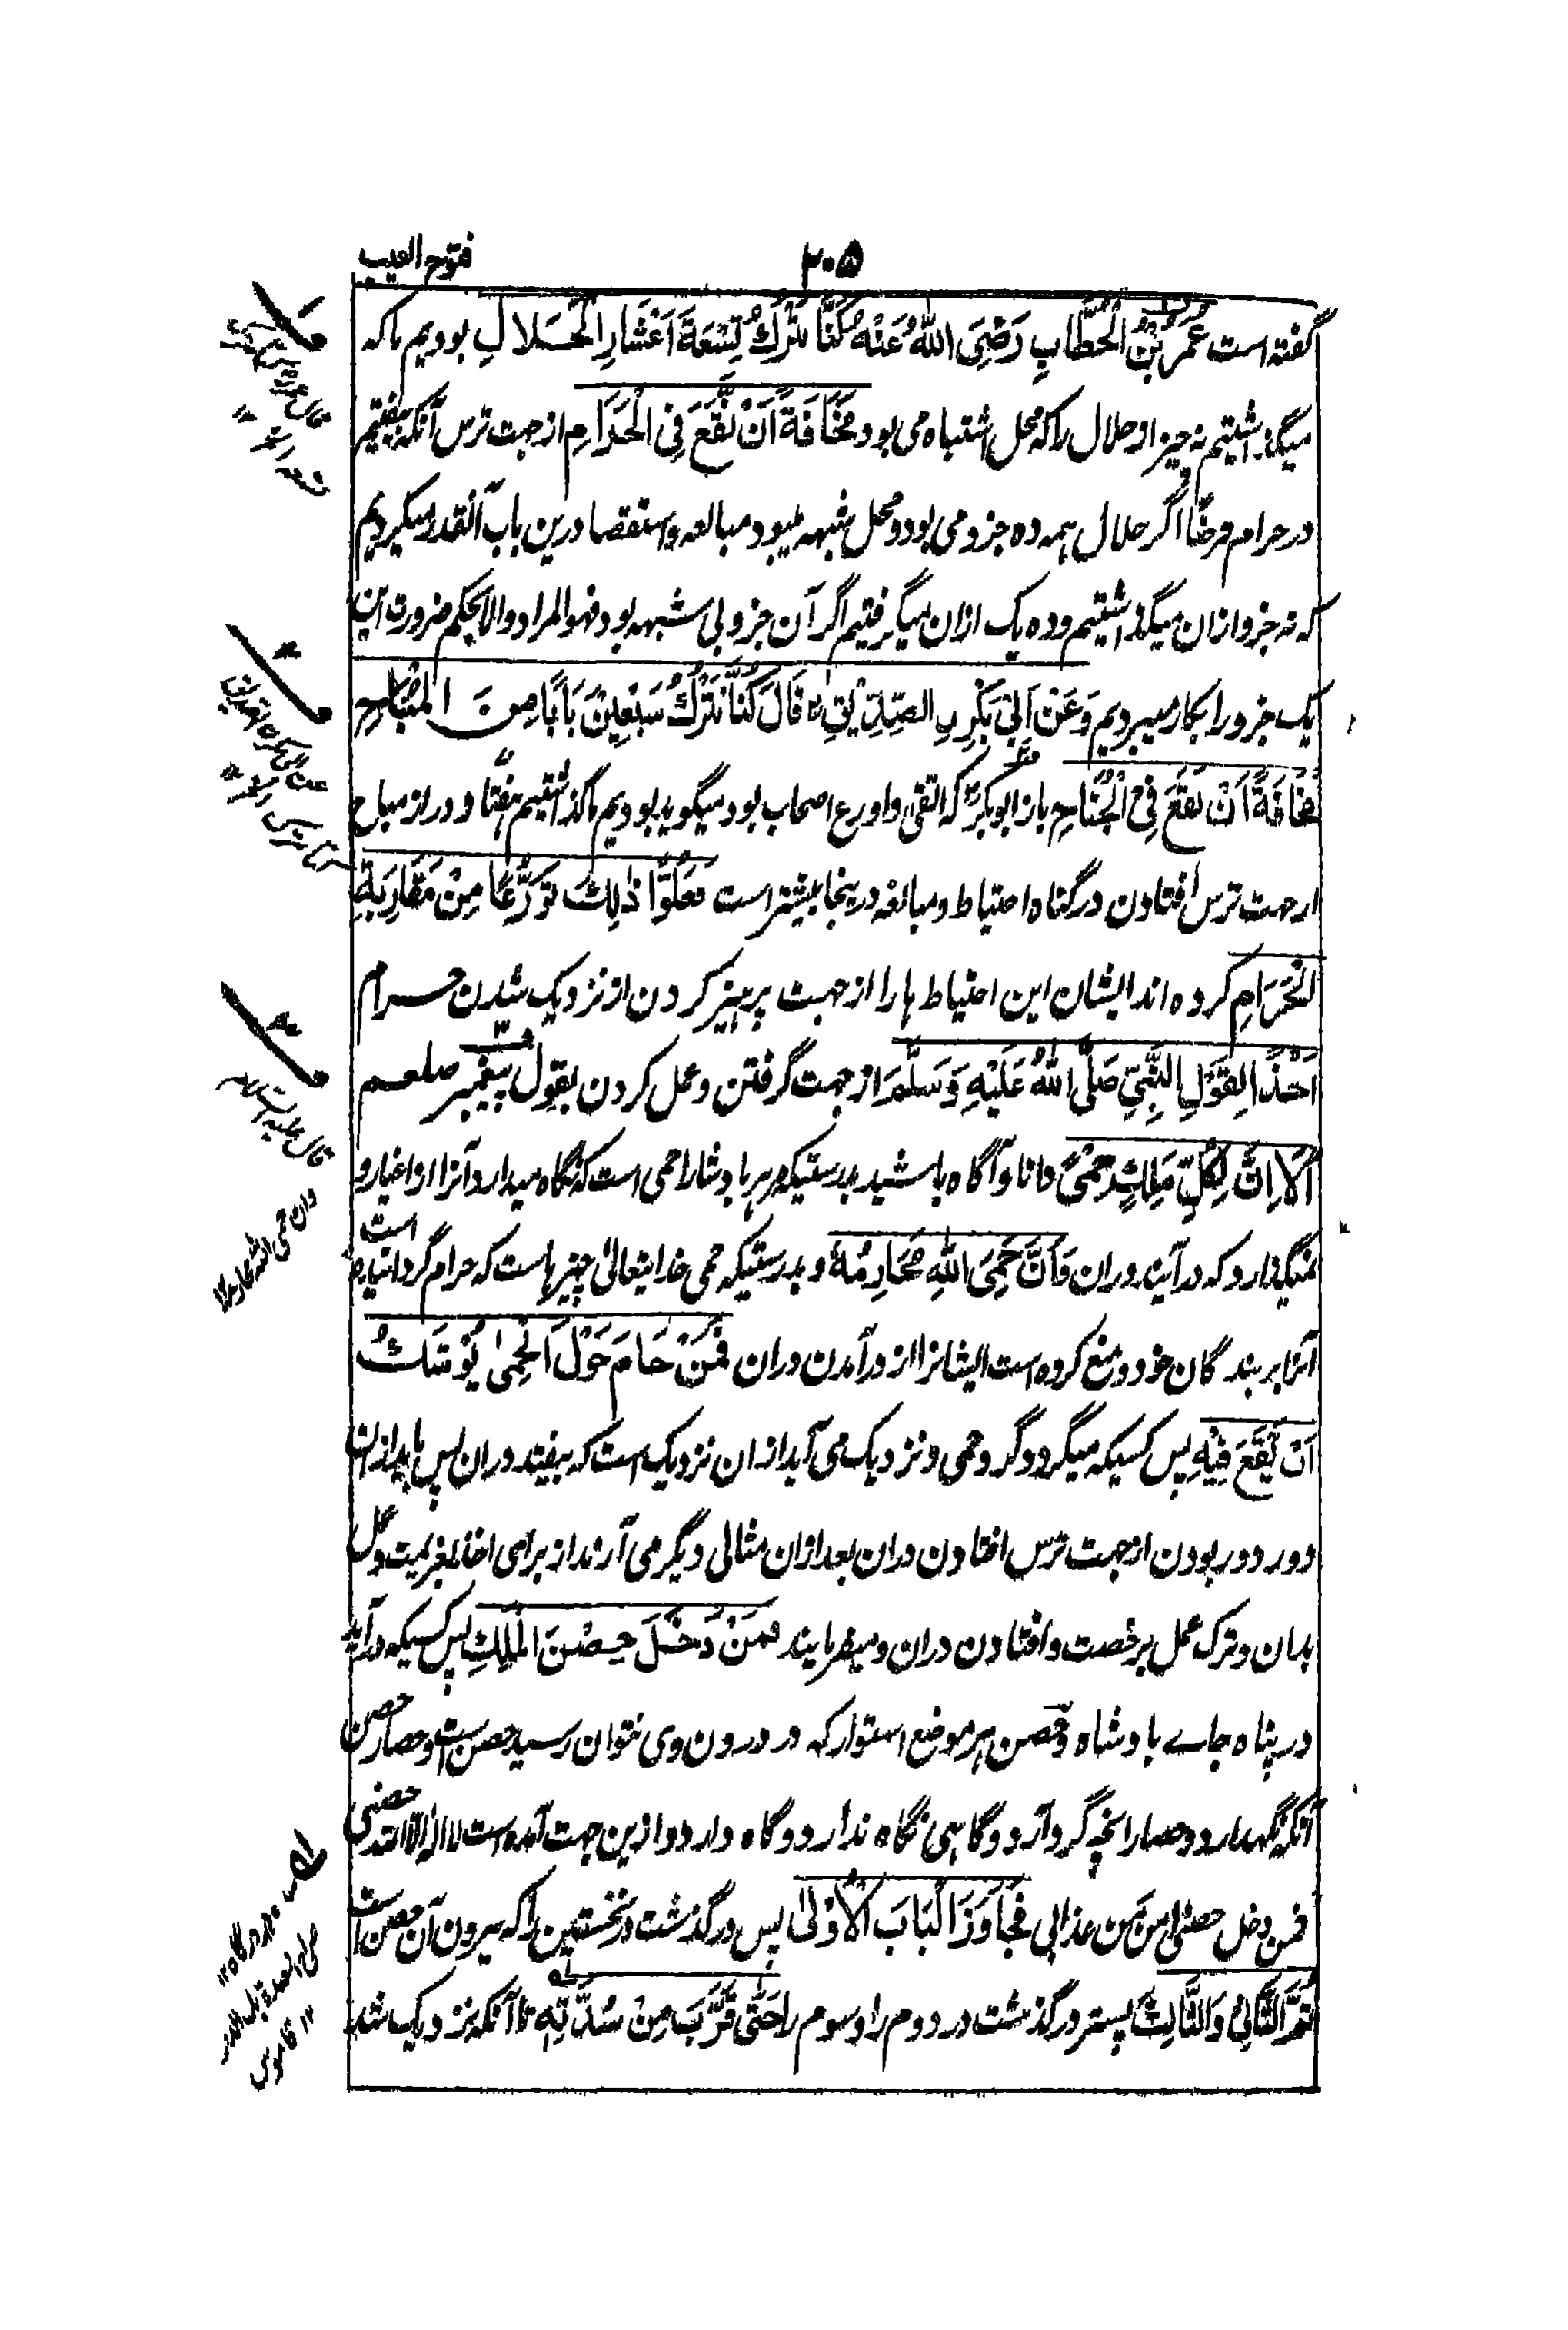 ۲۰۵
فتوح الغیب
گفته است عُمَرُ بْنُ الْخَطَّابِ رَضِيَ اللهُ عَنْهُ كُنَّا نَتْرُكُ تِسْعَةَ اَعْشَارِ الْحَلَالِ بودیم ما که
میگذاشتیم نه چیز از حلال را که محل اشتباه می بود مَخَافَةَ اَنْ نَّقَعَ فِي الْحَرَامِ از جهت ترس آنکه بیفتیم
در حرام فرضاً اگر حلال همه ده جزو می بود و محل شبهه میبود مبالغه و استقصا درین باب آنقدر میکردیم
که نه جزو ازان میگذاشتیم و ده یک ازان میگرفتیم اگر آن جزو بی شبهه بود فهو المراد والا بحکم ضرورت این
یک جزو را بکار میبردیم وَعَنْ اَبِيْ بَكْرِ الصِّدِّيْقِ قَالَ كُنَّا نَتْرُكُ سَبْعِيْنَ بَابًا مِنَ الْمُبَاحِ
مَخَافَةَ اَنْ نَقَعَ فِي الْجُنَاحِ باز ابوبکر که اتقی و اورع اصحاب بود میگوید بودیم ما گذاشتیم هفتاد در از مباح
از جهت ترس افتادن در گناه احتیاط و مبالغه درینجا بیشتر است فَعَلُوْا ذٰلِكَ تَوَرُّعًا مِنْ مُقَارَبَةِ
الْحَرَامِ کرده اند ایشان این احتیاط ها را از جهت پرهیز کردن از نزدیک شدن حرام
اَخْذًا لِقَوْلِ النَّبِيِّ صَلَّى اللهُ عَلَيْهِ وَسَلَّمَ از جهت گرفتن و عمل کردن بقول پیغمبر صلعم
اَلَا اِنَّ لِكُلِّ مَلِكٍ حِمًى دانا و آگاه باشید بدرستیکه مر هر بادشاه را حمی است که نگاه میدارد آنرا از اغیار و
نمیگذارد که در آیند دران فَاِنَّ حِمَى اللهِ مَحَارِمُهٗ و بدرستیکه حمی خدایتعالی چیزهاست که حرام گردانیده است
آنرا بر بندگان خود و منع کرده است ایشانرا از درآمدن دران فَمَنْ حَامَ حَوْلَ الْحِمٰى يُوْشَكُ
اَنْ يَّقَعَ فِيْهِ پس کسیکه میگردد گرد حمی و نزدیک می آید ازان نزدیک است که بیفتد دران پس باید ازان
دور دور بودن از جهت ترس افتادن دران بعد ازان مثالی دیگر می آرند از برای اخذ بعزیمت و عمل
بدان و ترک عمل برخصت و افتادن دران و میفرمایند فَمَنْ دَخَلَ حِصْنَ الْمَلِكِ پس کسیکه در آید
در پناه جاے بادشاه و حصن هر موضع استوار که در درون وی نتوان رسید حصن است و حصار حصن
آنکه نگهدارد و حصار انچه گرد آرد و گاهی نگاه ندارد و گاه دارد و ازین جهت آمده است لا اله الا الله حصنی
فمن دخل حصنی امن من عذابی فَجَاوَزَ الْبَابَ الْاُوْلٰى پس درگذشت در نخستین را که بیرون آن حصن است
ثُمَّ الثَّانِيْ وَالثَّالِثَ پستر درگذشت در دوم را و سوم را حَتّٰى قَرُبَ مِنْ سُدَّتِهٖ تا آنکه نزدیک شد